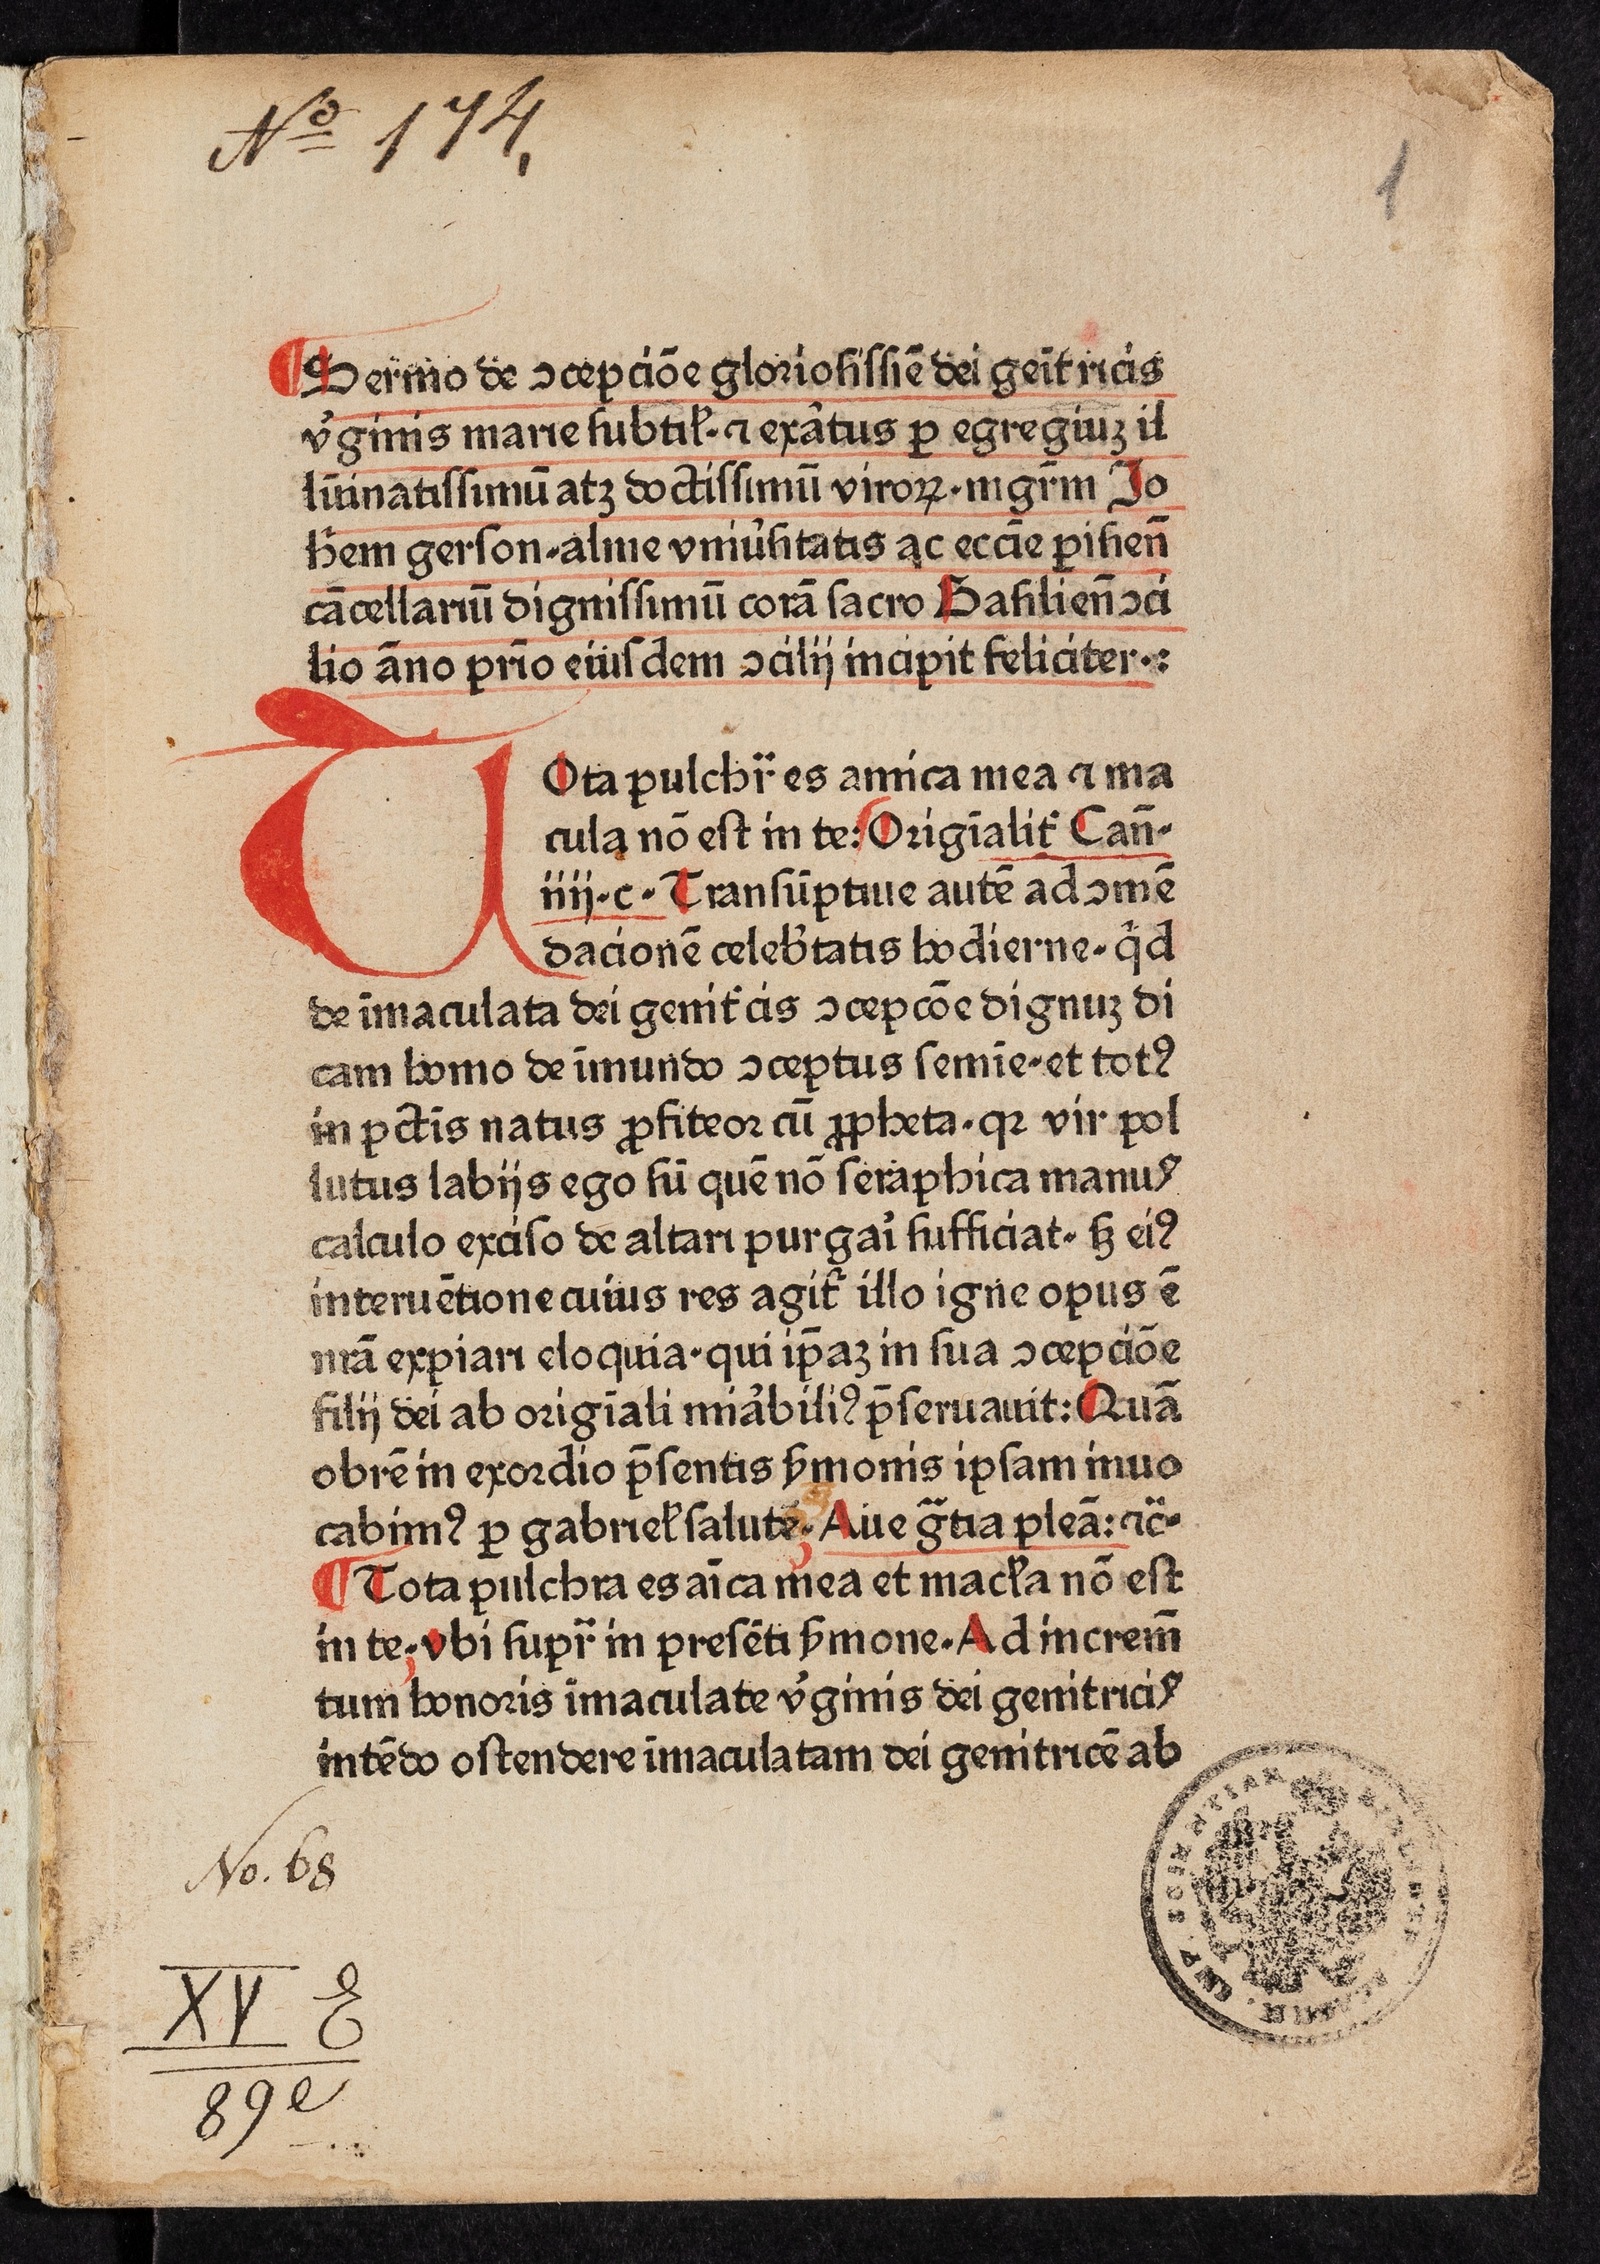 Nº 174,
1
¶Sermo de ↄcepciōe gloriosissīe dei geīt ricis
v̓ginis marie subtil̓· ⁊ exa̓tus ꝑ egregiuꝫ il
lūinatissimū atꝫ doctissimū viroꝝ· mgr̄m Jo
h̄em gerson· alme vniu̓sitatis ac eccīe ꝑisien̄
cācellariū dignissimū corā sacro Basilien̄ ↄci
lio āno prīo eiusdem ↄcilij incipit feliciter·:
TOta pulchr̃ es amica mea ⁊ ma
cula nō est in te: Origīalit̓ Can̄·
iiij·c· Transūptiue autē ad ↄmē
dacionē celeb̓tatis hodierne· q̓d
de īmaculata dei genit̓cis ↄcepcōe dignuꝫ di
cam homo de īmundo ↄceptus semīe· et totꝰ
in pctīs natus ꝓfiteor cū ꝓpheta· qꝛ vir pol
lutus labijs ego sū quē nō seraphica manus
calculo exciso de altari purgai̓ sufficiat· sꝫ eiꝰ
interuētione cuius res agit̃ illo igne opus ē
nr̄ā expiari eloquia· qui ip̄aꝫ in sua ↄcepciōe
filij dei ab origīali mia̓biliꝰ p̄seruauit: Quā
obrē in exordio p̄sentis s̓monis ipsam inuo
cabimꝰ ꝑ gabriel̓ salutē· Aue gr̃tia pleā: ⁊c̃·
¶Tota pulchra es aīca mea et macl̓a nō est
in te· vbi supr̃ in presēti s̓mone· Ad increm̄
tum honoris īmaculate v̓ginis dei genitricis
intēdo ostendere īmaculatam dei genitricē ab
No. 68
XV E
89e